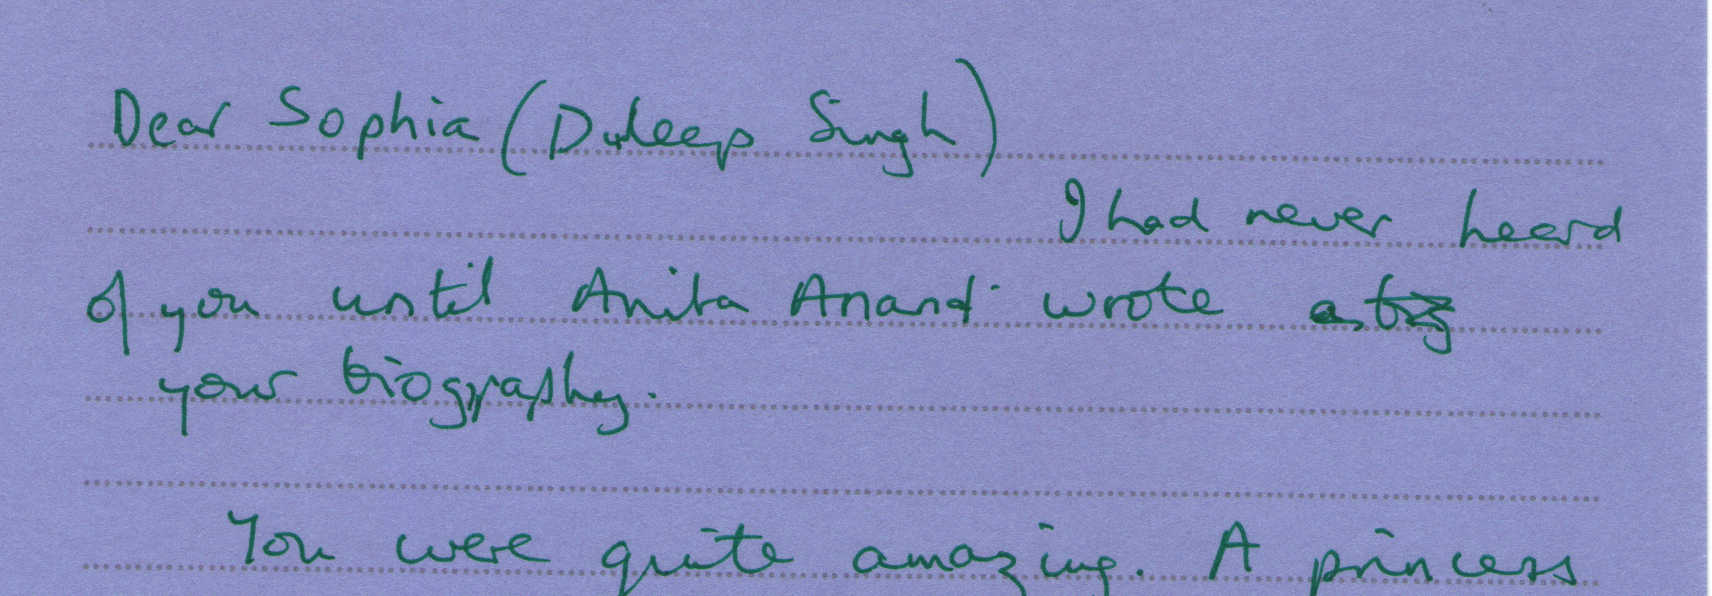 Dear Sophia (Duleep Singh)
I had never heard
of you until Anita Anand wrote a
your biography.
You were quite amazing. A princess